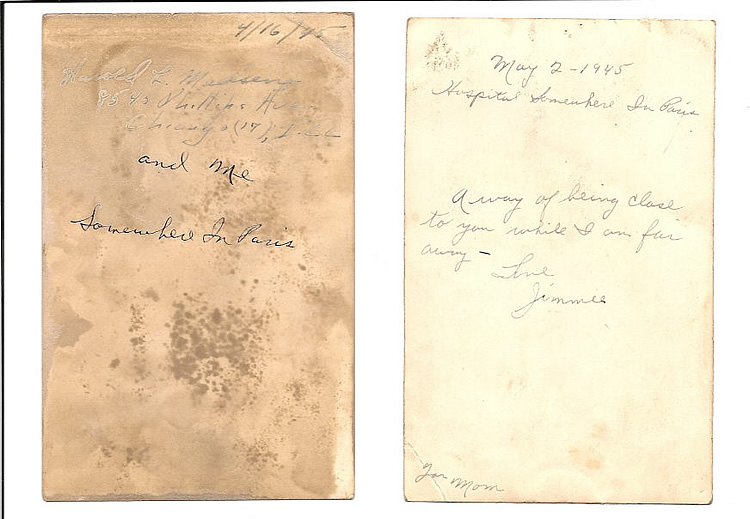 4/16/45
Harold L. Madsen
8545 Phillips Ave,
Chicago (17), Ill
and Me
Somewhere In Paris
May 2 - 1945
Hospital Somewhere In Paris
A way of being close
to you while I am far
away -
Love
Jimmie
For Mom